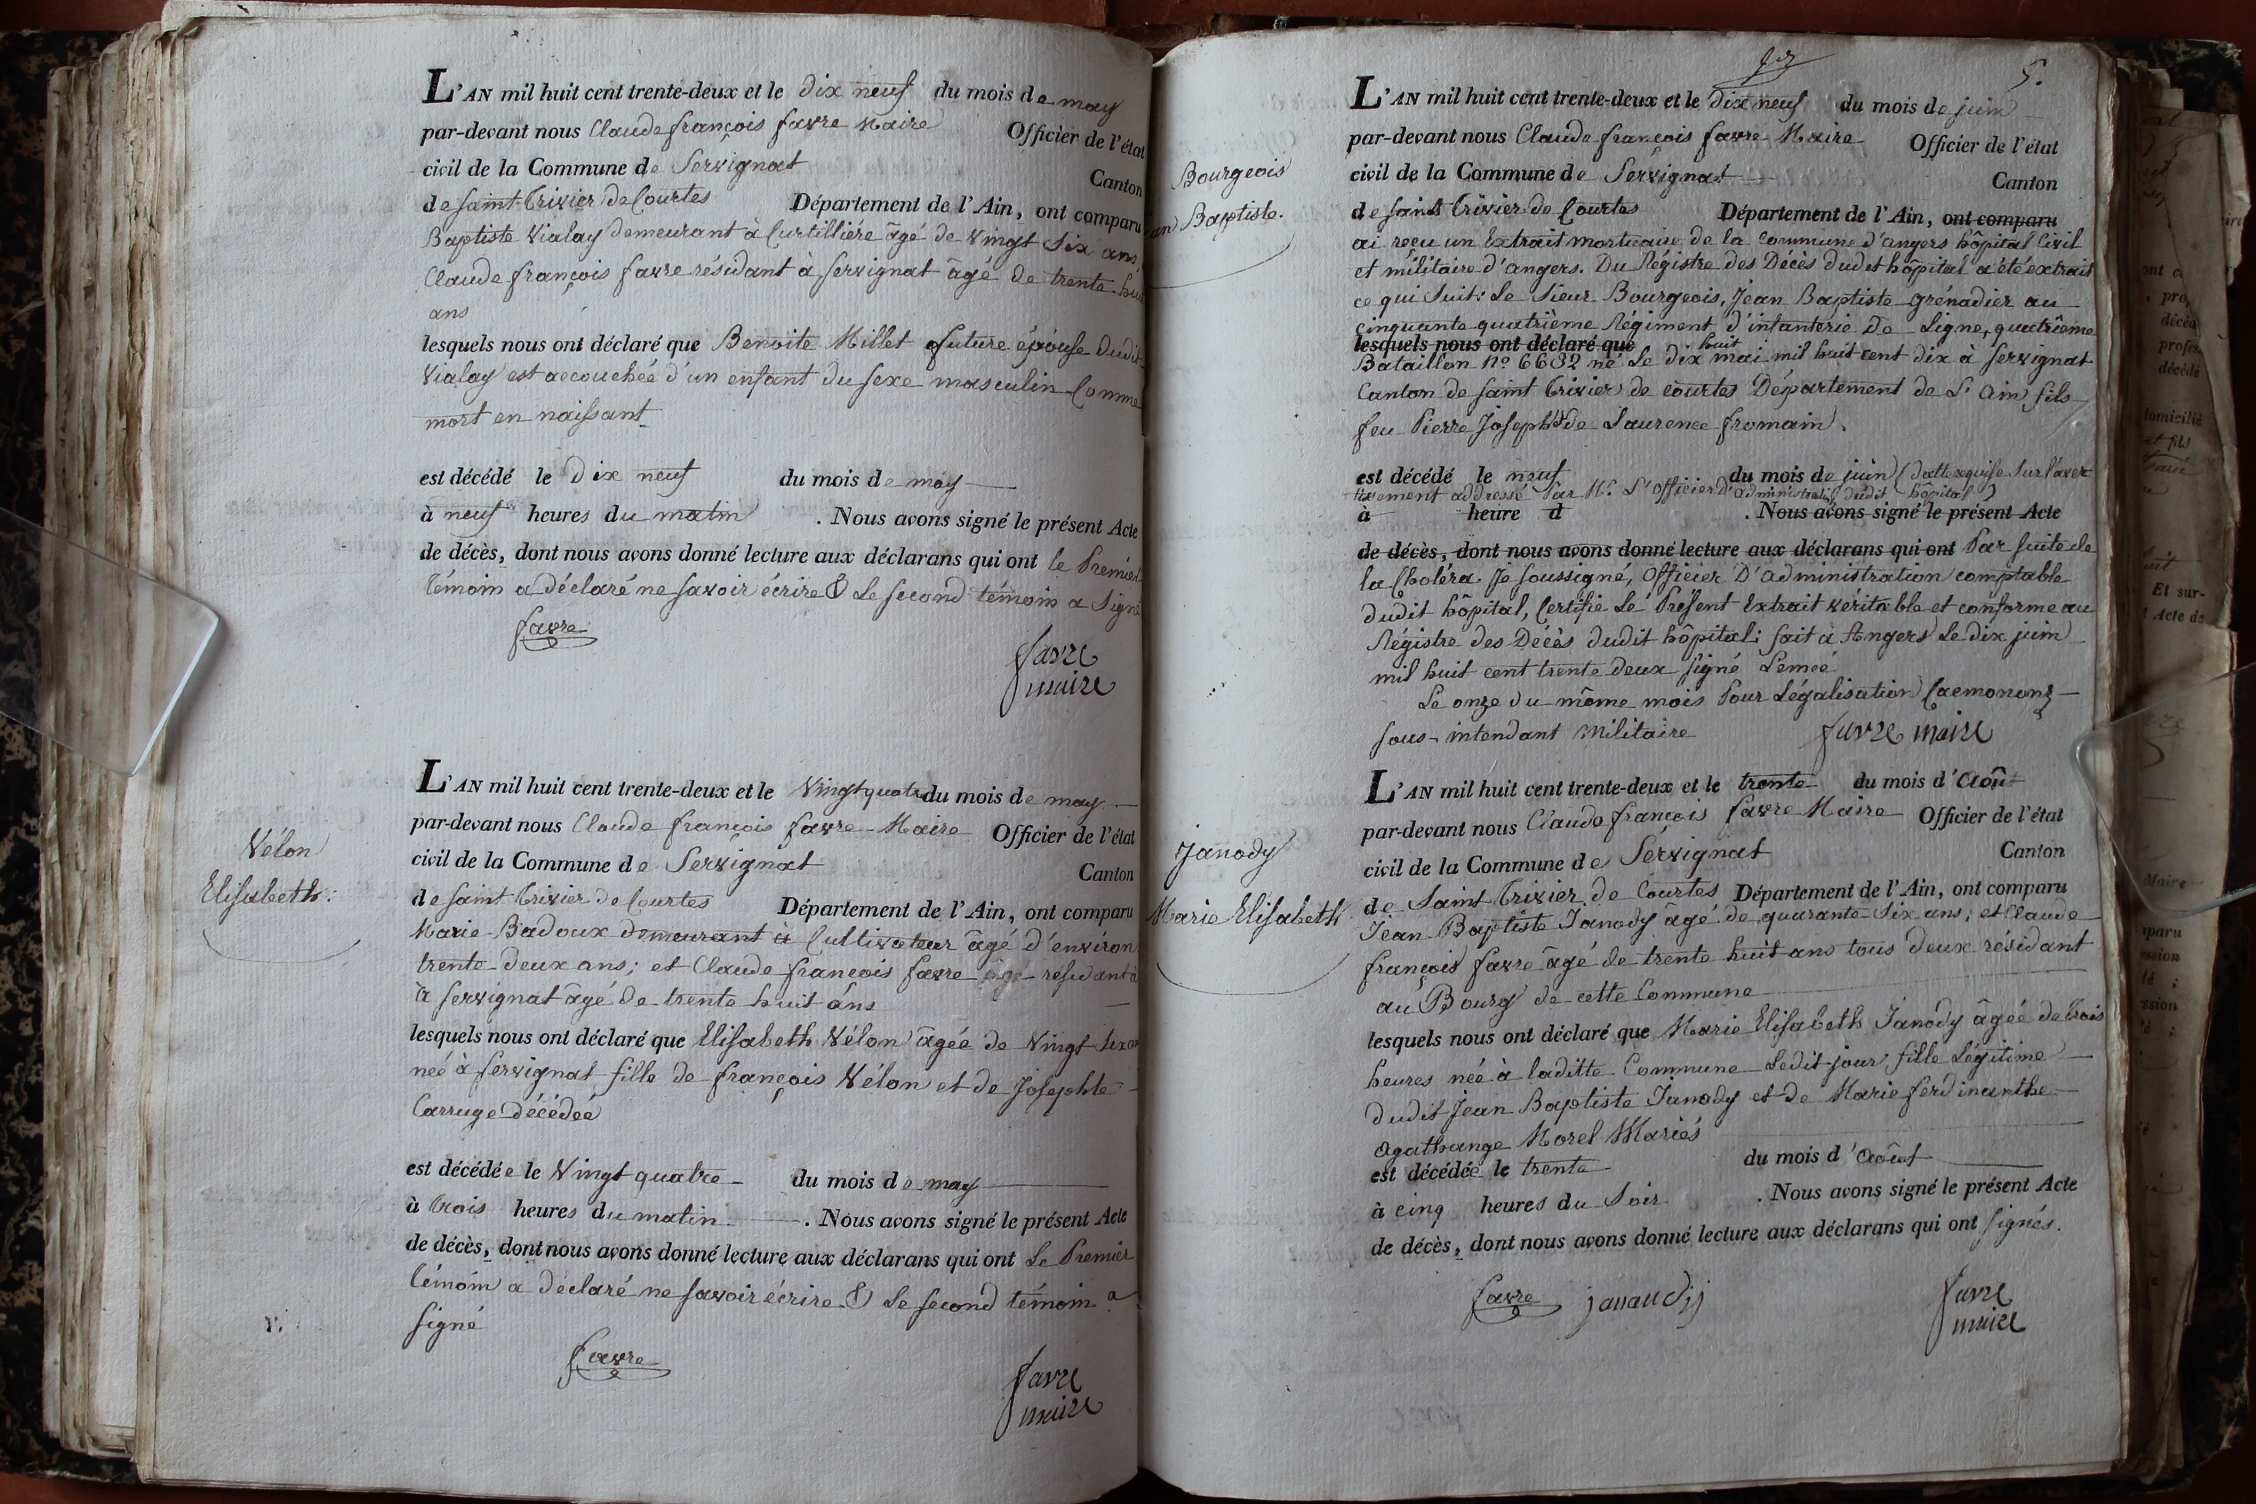 L'AN mil huit cent trente-deux et le dix neuf du mois de may
par-devant nous Claude françois favre Maire Officier de l'état
civil de la Commune de Servignat Canton
de saint Trivier de Courtes Département de l'Ain, ont comparu
Baptiste Vialay demeurant à Curtillière âgé de vingt six ans,
Claude françois favre résidant à servignat âgé de trente huit
ans
lesquels nous ont déclaré que Benoite Millet future épouse dudit
Vialay est accouchéé d'un enfant du sexe masculin Comme
mort en naissant
est décédé le Dix neuf du mois de may
à neuf heures du matin . Nous avons signé le présent Acte
de décès, dont nous avons donné lecture aux déclarans qui ont le Premier
témoin a déclaré ne savoir écrire & le second témoin a signé
favre
favre
maire
Vélon
Elisabeth.
L'AN mil huit cent trente-deux et le Vingt quatre du mois de may
par-devant nous Claude françois favre Maire Officier de l'état
civil de la Commune de Servignat Canton
de saint Trivier de Courtes Département de l'Ain, ont comparu
Marie Badoux demeurant à Cultivateur âgé d'environ
trente deux ans; et Claude françois favre âgé residant à
à servignat âgé de trente huit ans
lesquels nous ont déclaré que Elisabeth Vélon âgéé de Vingt
néé à servignat fille de françois Vélon et de Josephte
Carruge décédéé
est décédée le Vingt quatre du mois de may
à trois heures du matin . Nous avons signé le présent Acte
de décès, dont nous avons donné lecture aux déclarans qui ont Le Premier
témoin a declaré ne savoir écrire & le second témoin a
signé
favre
favre
maire
5.
Bourgeois
Baptiste.
L'AN mil huit cent trente-deux et le dix neuf du mois de juin
par-devant nous Claude françois favre Maire Officier de l'état
civil de la Commune de Servignat Canton
de saint Trivier de Courtes Département de l'Ain, ont comparu
ai reçu un Extrait mortuaire de la commune d'angers hôpital Civil
et militaire d'angers. Du Régistre des Décès dudit hôpital a été extrait
ce qui suit: Le Sieur Bourgeois, Jean Baptiste grénadier au
cinquante quatrième Régiment d'infanterie de Ligne, quatrième
lesquels nous ont déclaré que huit
Bataillon nº 6632 né le dix mai mil huit cent dix à servignat
Canton de saint Trivier de courtes Département de L'ain fils
feu Pierre Joseph & de Laurence fromain.
est décédé le neuf du mois de juin (datte requise sur l'aver
tissement addressé par Mr. L'officier D'administration dudit hôpital)
à heure d . Nous avons signé le présent Acte
de décès, dont nous avons donné lecture aux déclarans qui ont Par suite de
la Choléra. Je soussigné, Officier D'administration comptable
dudit hôpital, Certifie Le Présent Extrait véritable et conforme au
Régistre des Décès dudit hôpital: fait à Angers Le dix juin
mil huit cent trente deux signé Lemeé
Le onze du même mois Pour Légalisation
sous-intendant Militaire favre maire
Janody
Marie Elisabeth
L'AN mil huit cent trente-deux et le trente du mois d'Août
par-devant nous Claude françois favre Maire Officier de l'état
civil de la Commune de Servignat Canton
de Saint Trivier de Courtes Département de l'Ain, ont comparu
Jean Baptiste Janody âgé de quarante Six ans; et Claude
françois favre âgé de trente huit ans tous deux résidant
au Bourg de cette Commune
lesquels nous ont déclaré que Marie Elisabeth Janody âgéé de trois
heures néé à laditte Commune Ledit jour fille Légitime
dudit Jean Baptiste Janody et de Marie ferdinanthe
agathange Morel Mariés
est décédée le trente du mois d'août
à cinq heures du Soir . Nous avons signé le présent Acte
de décès, dont nous avons donné lecture aux déclarans qui ont signés.
favre janaudij
favre
maire